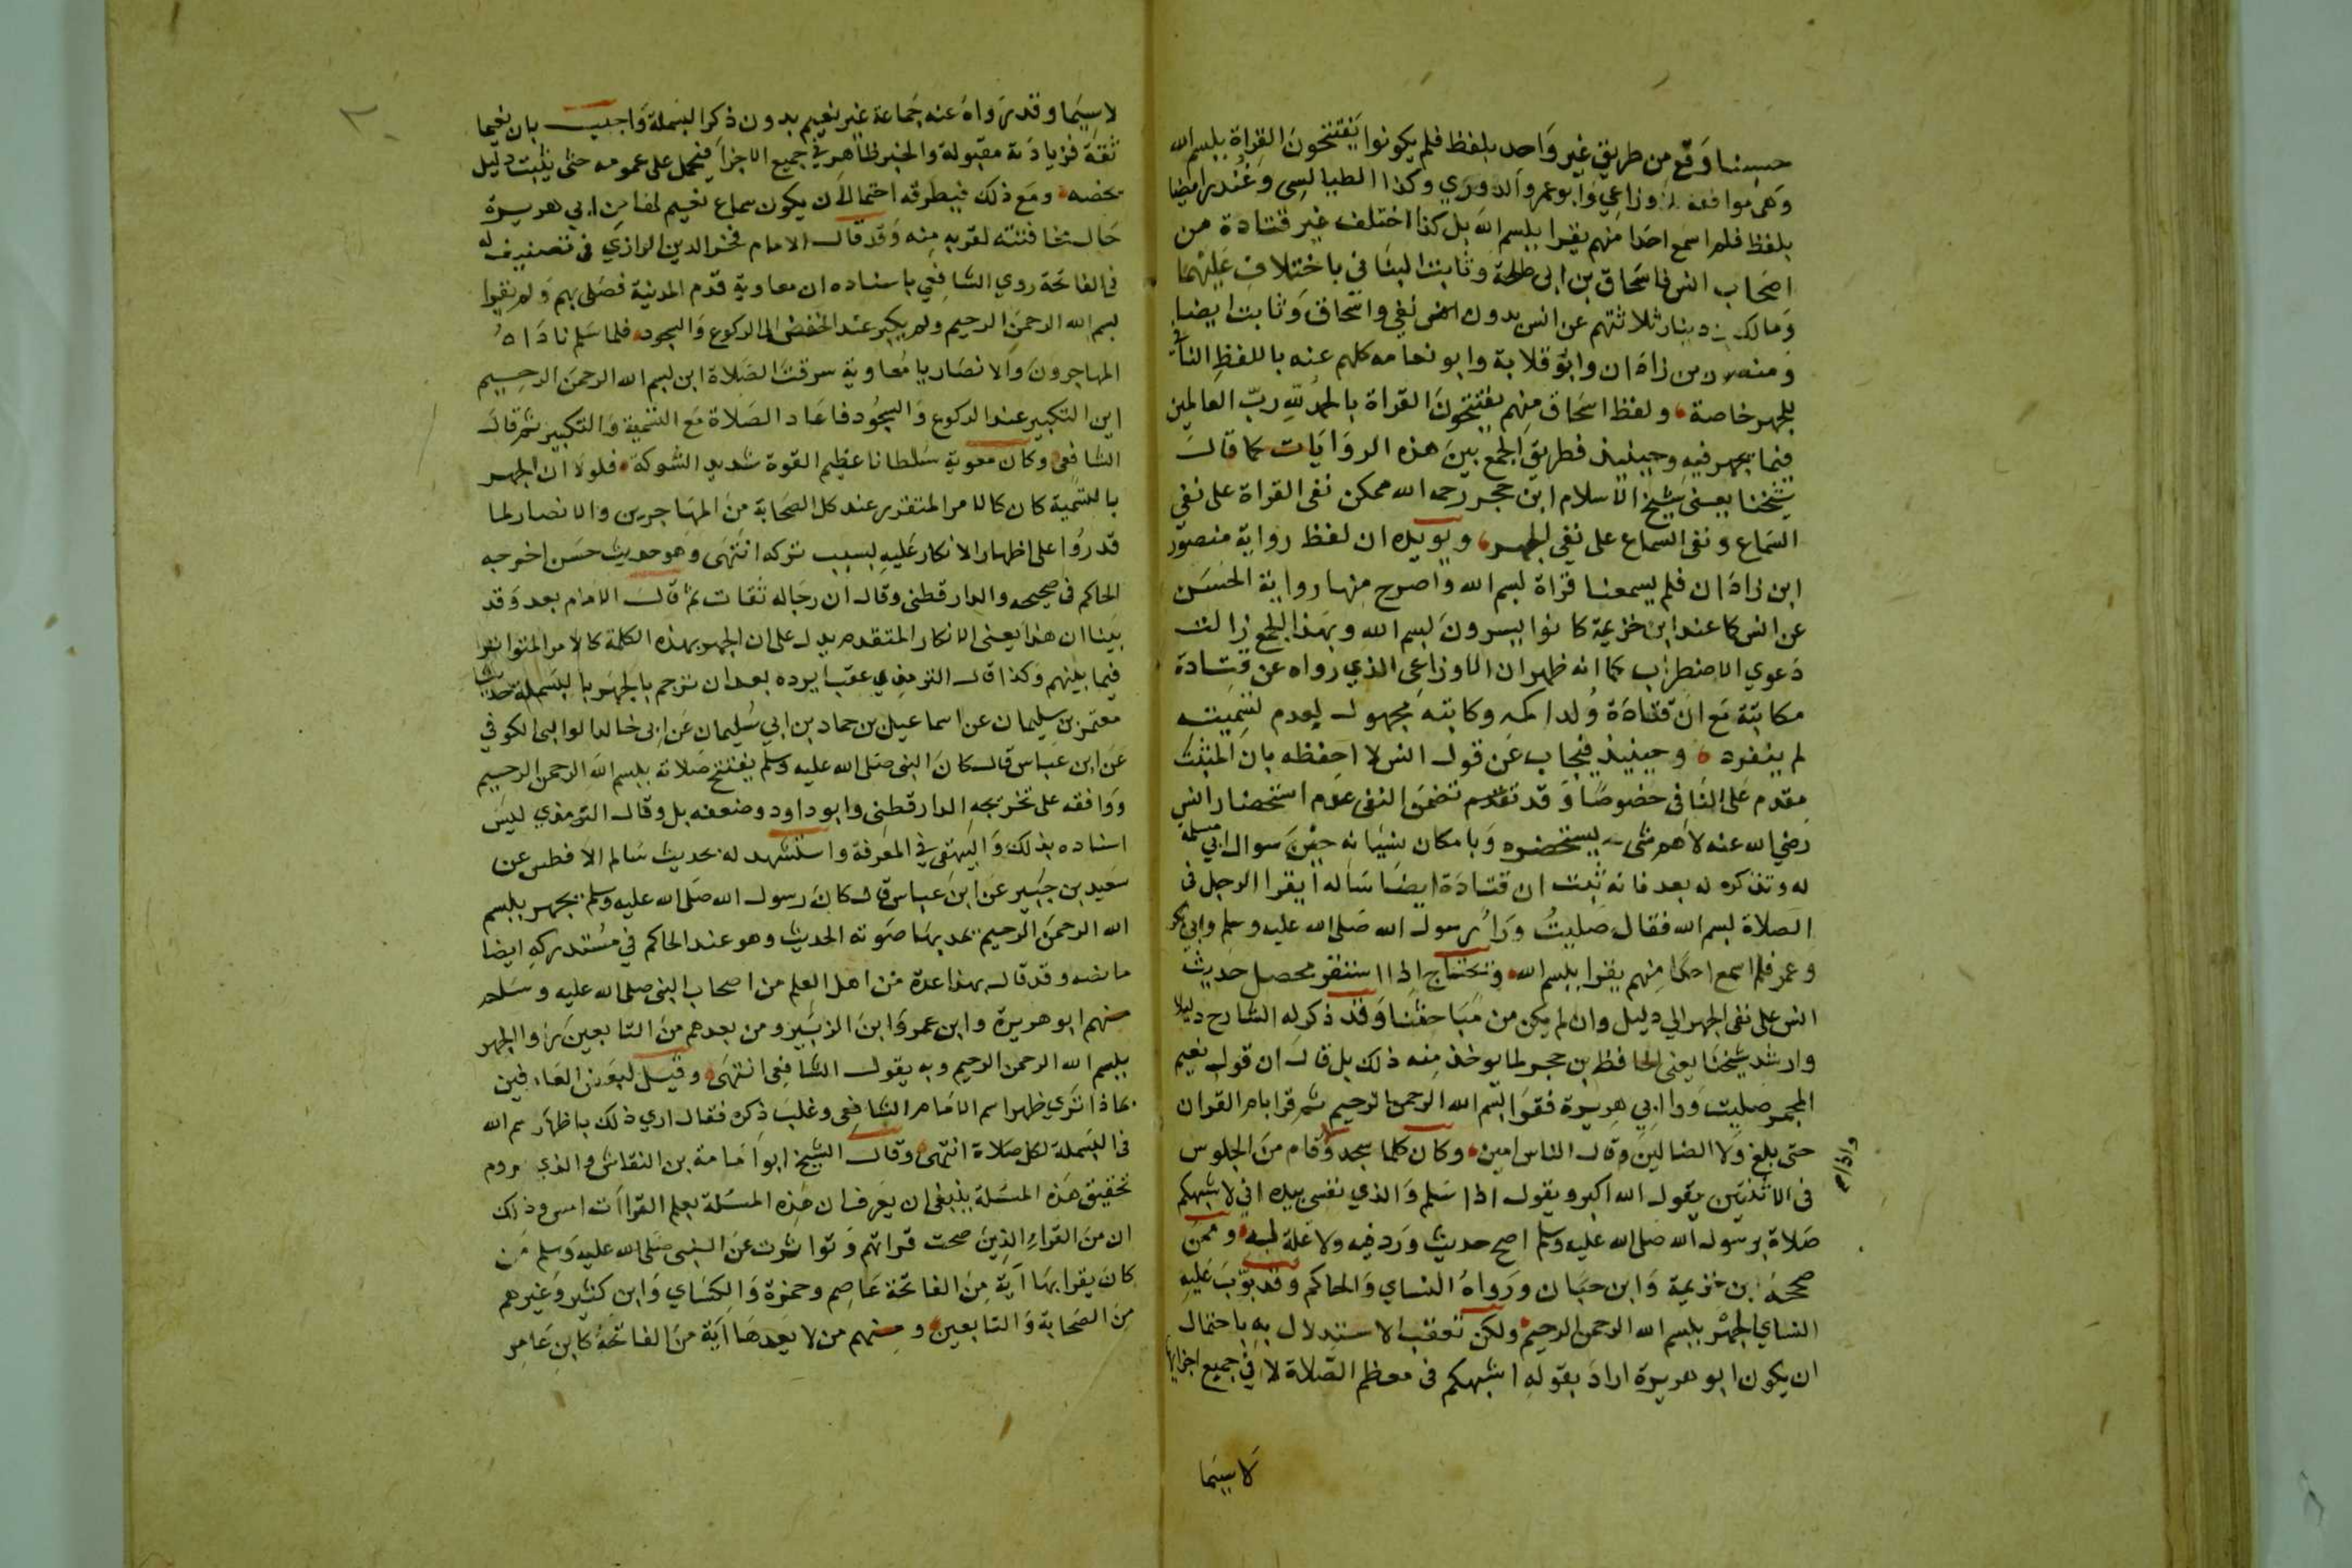 حسبنا وقع من طريق غير واحد بلفظ فلم يكونوا يفتتحون القراة ببسم الله
وهي موافقة للاوزاعي وابو عمرو الدوري وكذا الطيالسى وغندر ايضا
بلفظ فلم اسمع احدا منهم يقرا ببسم الله بل كذا اختلف غير قتادة من
اصحاب انس فاسحاق بن ابى طلحة وثابت البناني باختلاف عليهما
ومالك بن دينار ثلاثتهم عن انس بدون نفي واسحاق وثابت ايضا
ومنصور بن زاذان وابو قلابة وابو نعامه كلهم عنه باللفظ النافي
للجهر خاصة ولفظ اسحاق منهم يفتتحون القراة بالحمد لله رب العالمين
فيما يجهر فيه وحينيذ فطريق الجمع بين هذه الروايات كما قال
شيخنا يعنى شيخ الاسلام ابن حجر رحمه الله ممكن نفى القراة على نفي
السماع ونفى السماع على نفي الجهر ويويده ان لفظ رواية منصور
ابن زاذان فلم يسمعنا قراة بسم الله واصرح منها رواية الحسن
عن انس كما عند ابن خزيمة كانوا يسرون بسم الله وبهذا الجمع زالت
دعوي الاضطراب كما انه ظهر ان الاوزاعى الذي رواه عن قتادة
مكاتبة مع ان قتادة ولد اكمه وكاتبه مجهول لعدم تسميته
لم ينفرد وحينيذ فيجاب عن قول انس لا احفظه بان المثبت
مقدم على النافى خصوصا وقد تقدم تضمن النفى عدم استحضار انس
رضي الله عنه لاهم شى يستحضره وبامكان نسيانه حين سوال ابي مسلمة
له وتذكره له بعد فانه ثبت ان قتادة ايضا ساله ايقرا الرجل فى
الصلاة بسم الله فقال صليت ورا رسول الله صلى الله عليه وسلم وابي بكر
وعمر فلم اسمع احدا منهم يقرا ببسم الله وتحتاج اذا استقر محصل حديث
انس على نفى الجهر الي دليل وان لم يكن من مباحثنا وقد ذكر له الشارح دليلا
وارشد شيخنا يعنى الحافظ بن حجر لما يوخذ منه ذلك بل قال ان قول نعيم
المجمر صليت ورا ابي هريرة فقرا بسم الله الرحمن الرحيم ثم قرا بام القران
حتى بلغ ولا الضالين وقال الناس امين وكان كلما سجد وقام من الجلوس
واذا
فى الاثنتين يقول الله اكبر ويقول اذا سلم والذي نفسى بيده اني لاشبهكم
صلاة برسول الله صلى الله عليه وسلم اصح حديث ورد فيه ولا علة له وممن
صححه ابن خزيمة وابن حبان ورواه النساي والحاكم وقد بوب عليه
النساي الجهر ببسم الله الرحمن الرحيم ولكن تعقب الاستدلال به باحتمال
ان يكون ابو هريرة اراد بقوله اشبهكم فى معظم الصلاة لا في جميع اجزايها
لا سيما
لا سيما وقد رواه عنه جماعة غير نعيم بدون ذكر البسملة واجيب بان نعيما
ثقة فزيادته مقبولة والخبر ظاهر في جميع الاجزا فيحمل على عمومه حتى يثبت دليل
يخصه ومع ذلك فيطرقه احتمال ان يكون سماع نعيم لها من ابي هريرة
حال مخافتته لقربه منه وقد قال الامام فخر الدين الرازي فى تصنيف له
فى الفاتحة روي الشافعي باسناده ان معاوية قدم المدينة فصلى بهم ولم يقرا
بسم الله الرحمن الرحيم ولم يكبر عند الخفض الى الركوع والسجود فلما سلم ناداه
المهاجرون والانصار يا معاوية سرقت الصلاة اين بسم الله الرحمن الرحيم
اين التكبير عند الركوع والسجود فاعاد الصلاة مع التسمية والتكبير ثم قال
الشافعى وكان معوية سلطانا عظيم القوة شديد الشوكة فلولا ان الجهر
بالتسمية كان كالامر المتقرر عند كل الصحابة من المهاجرين والانصار لما
قدروا على اظهار الانكار عليه بسبب تركه انتهى وهو حديث حسن اخرجه
الحاكم فى صحيحه والدارقطنى وقال ان رجاله ثقات ثم قال الامام بعد وقد
بينا ان هذا يعنى الانكار المتقدم يدل على ان الجهر بهذه الكلمة كالامر المتواتر
فيما بينهم وكذا قال الترمذي عقب ايراده بعد ان ترجم بالجهر بالبسملة حديث
معتمر بن سليمان عن اسماعيل بن حماد بن ابي سليمان عن ابى خالد الوالبى الكوفي
عن ابن عباس قال كان النبى صلى الله عليه وسلم يفتتح صلاته ببسم الله الرحمن الرحيم
ووافقه على تخريجه الدارقطنى وابو داود وضعفه بل وقال الترمذي ليس
اسناده بذلك والبيهقى في المعرفة واستشهد له بحديث سالم الافطس عن
سعيد بن جبير عن ابن عباس قال كان رسول الله صلى الله عليه وسلم يجهر ببسم
الله الرحمن الرحيم يمد بها صوته الحديث وهو عند الحاكم في مستدركه ايضا
ما نصه وقد قال بهذا عدة من اهل العلم من اصحاب النبى صلى الله عليه وسلم
منهم ابو هريرة وابن عمر وابن الزبير ومن بعدهم من التابعين راوا الجهر
ببسم الله الرحمن الرحيم وبه يقول الشافعى انتهى وقيل لبعض العارفين
بماذا تري ظهر اسم الامام الشافعى وغلب ذكره فقال اري ذلك باظهار اسم الله
فى البسملة لكل صلاة انتهى وقال الشيخ ابو امامة بن النقاش والذي يروم
تحقيق هذه المسئلة ينبغى ان يعرف ان هذه المسئلة بعلم القراات امس وذلك
ان من القراء الذين صحت قراتهم وتواترت عن النبى صلى الله عليه وسلم من
كان يقرا بها آية من الفاتحة عاصم وحمزة والكساي وابن كثير وغيرهم
من الصحابة والتابعين ومنهم من لا يعدها آية من الفاتحة كابن عامر